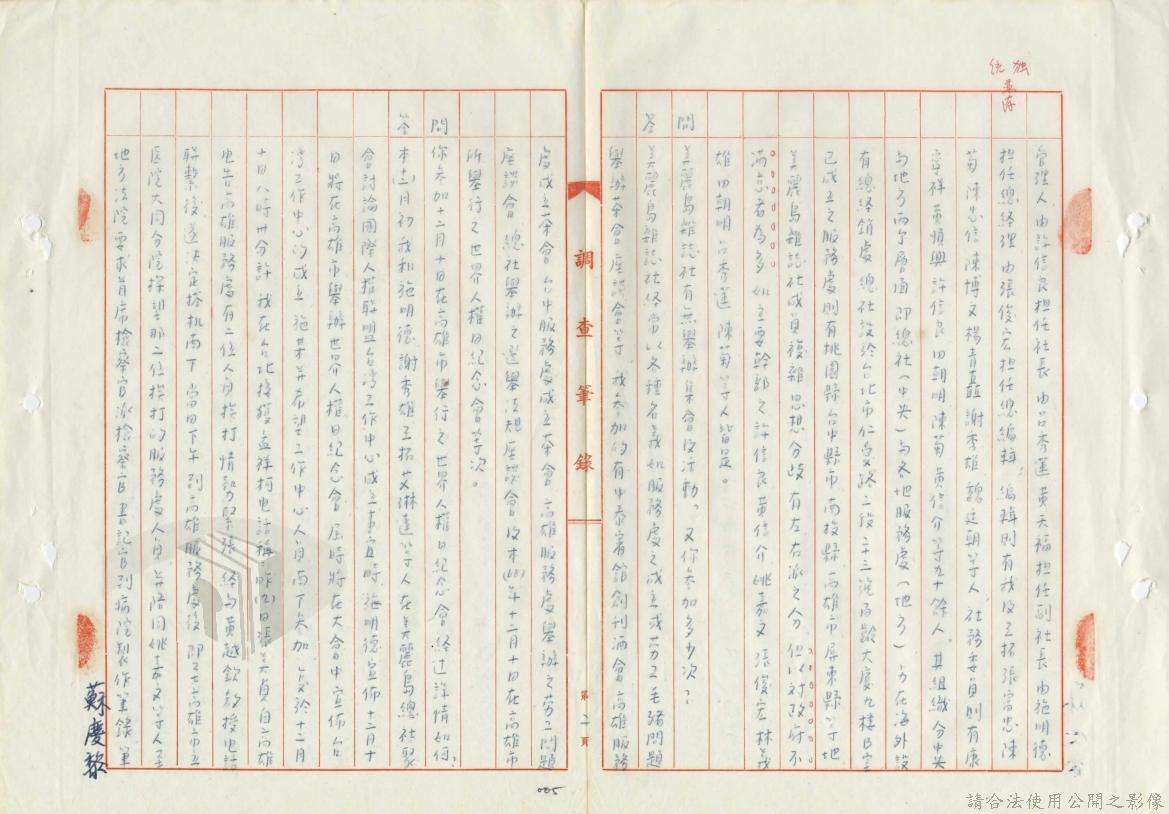 統独
並存
發理人由許信良担任社長由呂秀蓮黃天福担任副社長由施明德
担任總經理由張俊宏担任總編輯編輯則有我及王拓張富忠陳
菊陳忠信陳博文楊青矗謝秀雄魏廷朝等人社務委員則有康
寧祥黃順興許信良田朝明陳菊黃信介等九十餘人。其組織分中央
与地方兩个層面即總社(中央)与各地服務處(地方)另在海外設
有總經銷處總社設於台北市仁愛路三段二十三號百齡大廈九樓B室
已成立之服務處則有桃園縣台中縣市南投縣高雄市屏東縣等地
美麗島雜誌社成員複雜思想分歧有左右派之分但以对政府不
滿意者為多如主要幹部之許信良黃信介姚嘉文張俊宏林義
雄田朝明呂秀蓮陳菊等人皆是。
問 美麗島雜誌社有無舉辦集會及活動？又你參加多少次？
答 美麗島雜誌社經常以各種名義如服務處之成立或勞工毛豬問題
舉辦茶會座談會等我參加的有中泰賓館創刊酒會高雄服務
調查筆錄
第二頁
處成立茶會台中服務處成立茶會高雄服務處舉辦之勞工問題
座談會總社舉辦之選舉法規座談會及本(68)年十二月十日在高雄市
所舉行之世界人權日紀念會等次。
問 你參加十二月十日在高雄市舉行之世界人權日紀念會經过詳情如何？
答 本(十二)月初我和施明德謝秀雄王拓艾琳達等人在美麗島總社聚
會討論國際人權聯盟台灣工作中心成立事宜時施明德宣佈十二月十
日將在高雄市舉辦世界人權日紀念會屆時將在大會中宣佈台
灣工作中心的成立施某並希望工作中心人員南下參加迄於十二月
十日八時卅分許我在台北接獲孟祥柯电話稱昨(九)日張美貞自高雄
电告高雄服務處有二位人員挨打情勢緊張經与黃越欽教授电話
聯繫後遂決定搭机南下當日下午到高雄服務處後即去高雄市立
医院大同分院探望那二位挨打的服務處人員並陪同姚嘉文等人至
地方法院要求首席檢察官派檢察官書記官到病院製作筆錄筆
蘇慶黎
005
請合法使用公開之影像